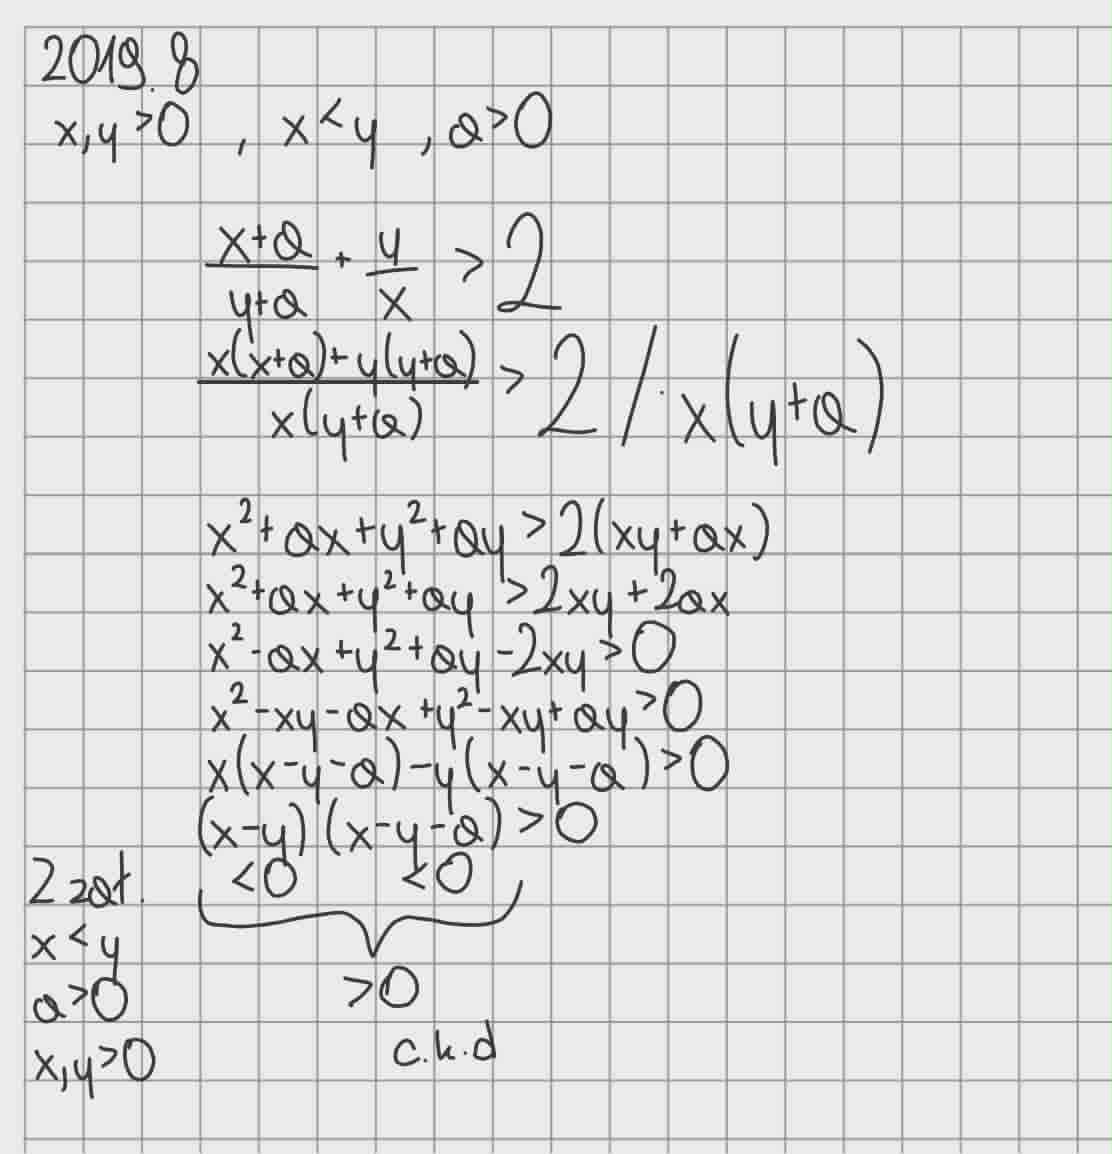 2019.8
x,y>0 , x<y , a>0
(x+a)/(y+a) + y/x > 2
(x(x+a)+y(y+a))/(x(y+a)) > 2 /·x(y+a)
x²+ax+y²+ay>2(xy+ax)
x²+ax+y²+ay>2xy+2ax
x²-ax+y²+ay-2xy>0
x²-xy-ax+y²-xy+ay>0
x(x-y-a)-y(x-y-a)>0
(x-y)(x-y-a)>0
<0 <0
Z zał.
x<y
a>0
x,y>0
>0
c.k.d